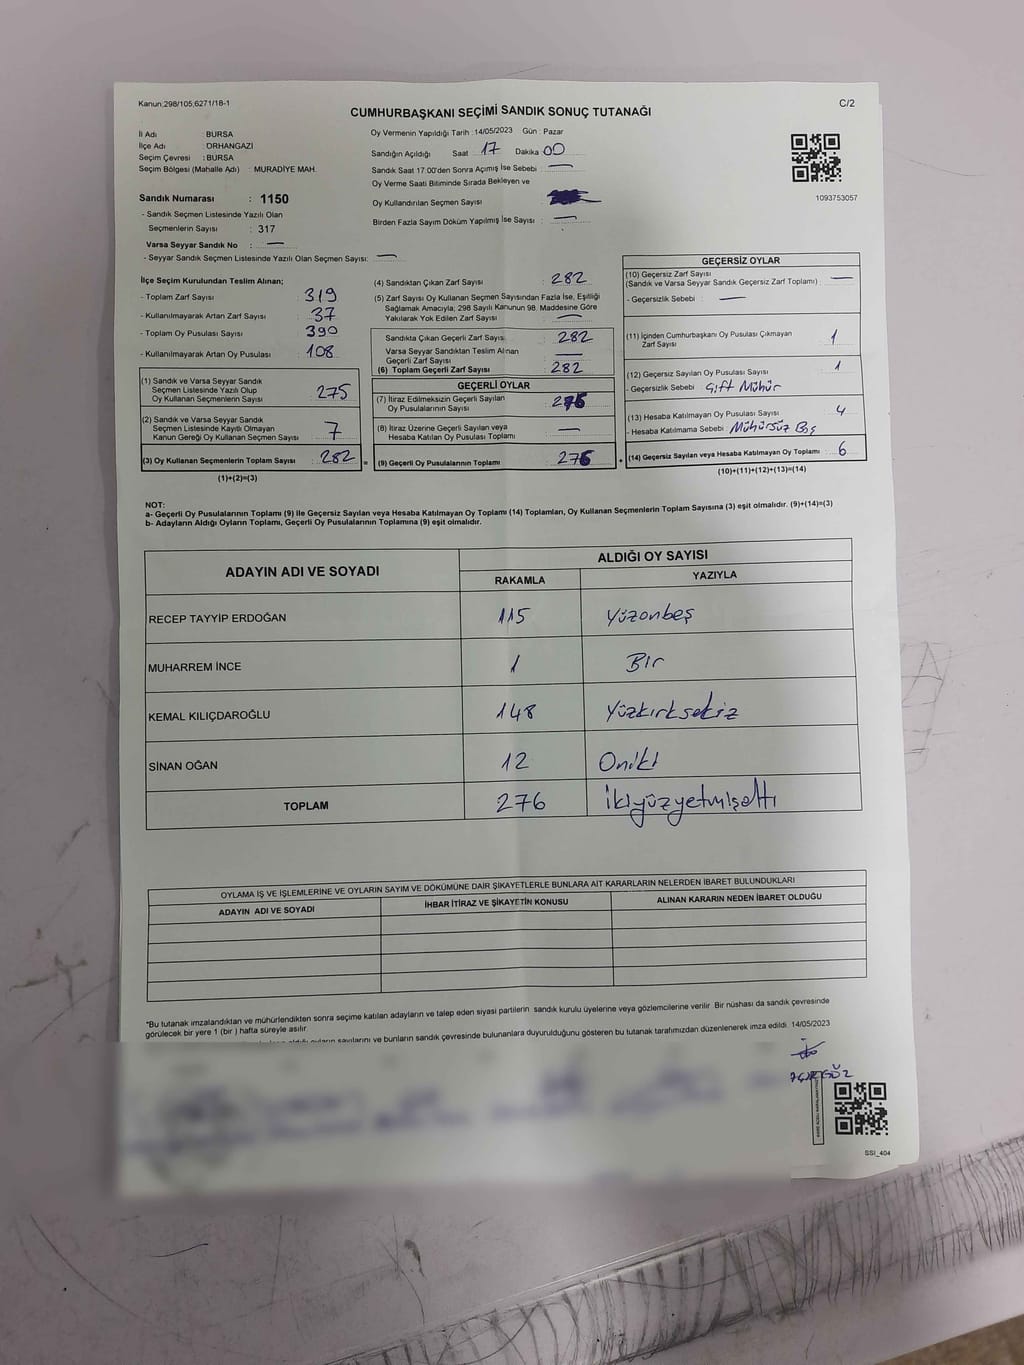 Kanun:298/105,6271/18-1
C/2
CUMHURBAŞKANI SEÇİMİ SANDIK SONUÇ TUTANAĞI
İl Adı : BURSA
İlçe Adı : ORHANGAZİ
Seçim Çevresi : BURSA
Seçim Bölgesi (Mahalle Adı) : MURADİYE MAH.
Sandık Numarası : 1150
- Sandık Seçmen Listesinde Yazılı Olan
Seçmenlerin Sayısı : 317
Varsa Seyyar Sandık No : —
- Seyyar Sandık Seçmen Listesinde Yazılı Olan Seçmen Sayısı: —
Oy Vermenin Yapıldığı Tarih : 14/05/2023 Gün : Pazar
Sandığın Açıldığı Saat 17 Dakika 00
Sandık Saat 17.00'den Sonra Açımış İse Sebebi : —
Oy Verme Saati Bitiminde Sırada Bekleyen ve
Oy Kullandırılan Seçmen Sayısı :
Birden Fazla Sayım Döküm Yapılmış İse Sayısı : —
1093753057
İlçe Seçim Kurulundan Teslim Alınan;
- Toplam Zarf Sayısı : 319
- Kullanılmayarak Artan Zarf Sayısı : 37
- Toplam Oy Pusulası Sayısı : 390
- Kullanılmayarak Artan Oy Pusulası : 108
(1) Sandık ve Varsa Seyyar Sandık
Seçmen Listesinde Yazılı Olup
Oy Kullanan Seçmenlerin Sayısı : 275
(2) Sandık ve Varsa Seyyar Sandık
Seçmen Listesinde Kayıtlı Olmayan
Kanun Gereği Oy Kullanan Seçmen Sayısı : 7
(3) Oy Kullanan Seçmenlerin Toplam Sayısı : 282 =
(1)+(2)=(3)
(4) Sandıktan Çıkan Zarf Sayısı : 282
(5) Zarf Sayısı Oy Kullanan Seçmen Sayısından Fazla İse, Eşitliği
Sağlamak Amacıyla; 298 Sayılı Kanunun 98. Maddesine Göre
Yakılarak Yok Edilen Zarf Sayısı : —
Sandıkta Çıkan Geçerli Zarf Sayısı : 282
Varsa Seyyar Sandıktan Teslim Alınan
Geçerli Zarf Sayısı : —
(6) Toplam Geçerli Zarf Sayısı : 282
GEÇERLİ OYLAR
(7) İtiraz Edilmeksizin Geçerli Sayılan
Oy Pusulalarının Sayısı : 276
(8) İtiraz Üzerine Geçerli Sayılan veya
Hesaba Katılan Oy Pusulası Toplamı : —
(9) Geçerli Oy Pusulalarının Toplamı : 276 +
GEÇERSİZ OYLAR
(10) Geçersiz Zarf Sayısı
(Sandık ve Varsa Seyyar Sandık Geçersiz Zarf Toplamı) : —
- Geçersizlik Sebebi : —
(11) İçinden Cumhurbaşkanı Oy Pusulası Çıkmayan
Zarf Sayısı : 1
(12) Geçersiz Sayılan Oy Pusulası Sayısı : 1
- Geçersizlik Sebebi : Çift Mühür
(13) Hesaba Katılmayan Oy Pusulası Sayısı : 4
- Hesaba Katılmama Sebebi : Mühürsüz Boş
(14) Geçersiz Sayılan veya Hesaba Katılmayan Oy Toplamı : 6
(10)+(11)+(12)+(13)=(14)
NOT:
a- Geçerli Oy Pusulalarının Toplamı (9) İle Geçersiz Sayılan veya Hesaba Katılmayan Oy Toplamı (14) Toplamları, Oy Kullanan Seçmenlerin Toplam Sayısına (3) eşit olmalıdır. (9)+(14)=(3)
b- Adayların Aldığı Oyların Toplamı, Geçerli Oy Pusulalarının Toplamına (9) eşit olmalıdır.
ADAYIN ADI VE SOYADI
ALDIĞI OY SAYISI
RAKAMLA YAZIYLA
RECEP TAYYİP ERDOĞAN 115 Yüzonbeş
MUHARREM İNCE 1 Bir
KEMAL KILIÇDAROĞLU 148 Yüzkırksekiz
SİNAN OĞAN 12 Oniki
TOPLAM 276 İkiyüzyetmişaltı
OYLAMA İŞ VE İŞLEMLERİNE VE OYLARIN SAYIM VE DÖKÜMÜNE DAİR ŞİKAYETLERLE BUNLARA AİT KARARLARIN NELERDEN İBARET BULUNDUKLARI
ADAYIN ADI VE SOYADI İHBAR İTİRAZ VE ŞİKAYETİN KONUSU ALINAN KARARIN NEDEN İBARET OLDUĞU
*Bu tutanak imzalandıktan ve mühürlendikten sonra seçime katılan adayların ve talep eden siyasi partilerin sandık kurulu üyelerine veya gözlemcilerine verilir. Bir nüshası da sandık çevresinde
görülecek bir yere 1 (bir ) hafta süreyle asılır.
aldığı oyların sayılarını ve bunların sandık çevresinde bulunanlara duyurulduğunu gösteren bu tutanak tarafımızdan düzenlenerek imza edildi. 14/05/2023
SSI_404